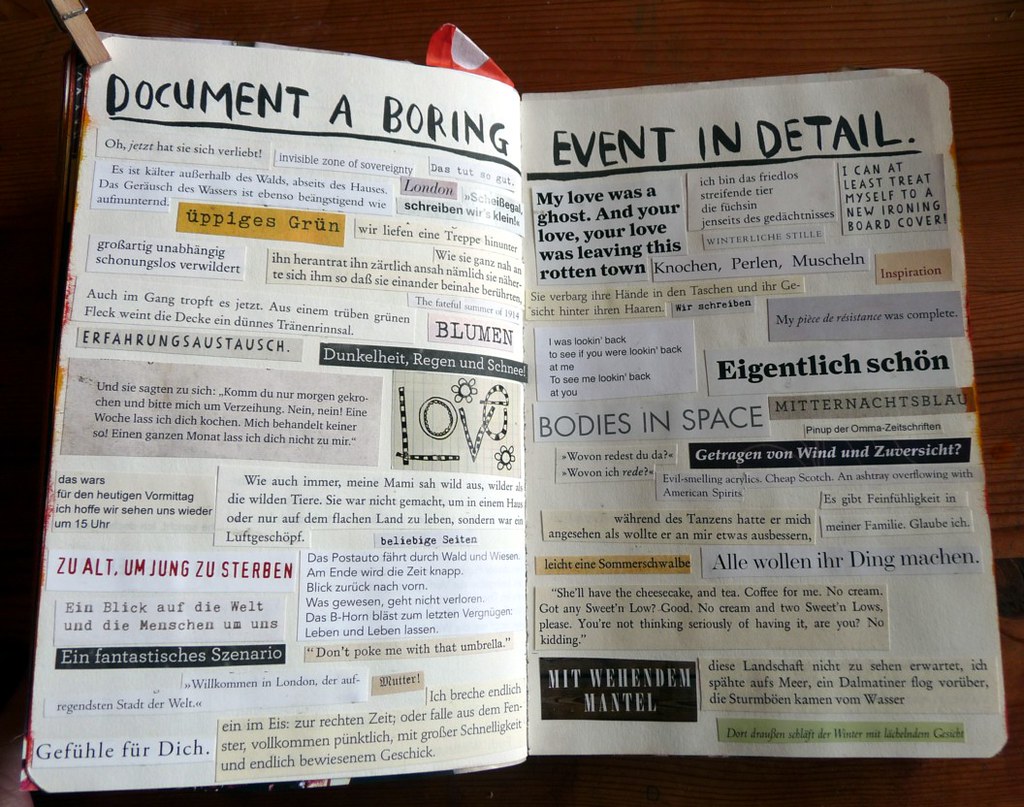 DOCUMENT A BORING
Oh, jetzt hat sie sich verliebt!
invisible zone of sovereignty
Das tut so gut.
Es ist kälter außerhalb des Walds, abseits des Hauses.
Das Geräusch des Wassers ist ebenso beängstigend wie
aufmunternd.
London
»Scheißegal,
schreiben wir's klein!«
üppiges Grün
wir liefen eine Treppe hinunter
großartig unabhängig
schonungslos verwildert
Wie sie ganz nah an
ihn herantrat ihn zärtlich ansah nämlich sie näher-
te sich ihm so daß sie einander beinahe berührten,
Auch im Gang tropft es jetzt. Aus einem trüben grünen
Fleck weint die Decke ein dünnes Tränenrinnsal.
The fateful summer of 1914
BLUMEN
ERFAHRUNGSAUSTAUSCH.
Dunkelheit, Regen und Schnee!
Und sie sagten zu sich: „Komm du nur morgen gekro-
chen und bitte mich um Verzeihung. Nein, nein! Eine
Woche lass ich dich kochen. Mich behandelt keiner
so! Einen ganzen Monat lass ich dich nicht zu mir.“
LOVE
das wars
für den heutigen Vormittag
ich hoffe wir sehen uns wieder
um 15 Uhr
Wie auch immer, meine Mami sah wild aus, wilder als
die wilden Tiere. Sie war nicht gemacht, um in einem Haus
oder nur auf dem flachen Land zu leben, sondern war ein
Luftgeschöpf.
beliebige Seiten
ZU ALT, UM JUNG ZU STERBEN
Das Postauto fährt durch Wald und Wiesen.
Am Ende wird die Zeit knapp.
Blick zurück nach vorn.
Was gewesen, geht nicht verloren.
Das B-Horn bläst zum letzten Vergnügen:
Leben und Leben lassen.
Ein Blick auf die Welt
und die Menschen um uns
Ein fantastisches Szenario
“Don't poke me with that umbrella.”
»Willkommen in London, der auf-
regendsten Stadt der Welt.«
Mutter!
Ich breche endlich
ein im Eis: zur rechten Zeit; oder falle aus dem Fen-
ster, vollkommen pünktlich, mit großer Schnelligkeit
und endlich bewiesenem Geschick.
Gefühle für Dich.
EVENT IN DETAIL.
My love was a
ghost. And your
love, your love
was leaving this
rotten town
ich bin das friedlos
streifende tier
die füchsin
jenseits des gedächtnisses
I CAN AT
LEAST TREAT
MYSELF TO A
NEW IRONING
BOARD COVER!
WINTERLICHE STILLE
Knochen, Perlen, Muscheln
Inspiration
Sie verbarg ihre Hände in den Taschen und ihr Ge-
sicht hinter ihren Haaren.
Wir schreiben
My pièce de résistance was complete.
I was lookin' back
to see if you were lookin' back
at me
To see me lookin' back
at you
Eigentlich schön
BODIES IN SPACE
MITTERNACHTSBLAU
Pinup der Omma-Zeitschriften
»Wovon redest du da?«
»Wovon ich rede?«
Getragen von Wind und Zuversicht?
Evil-smelling acrylics. Cheap Scotch. An ashtray overflowing with
American Spirits
Es gibt Feinfühligkeit in
meiner Familie. Glaube ich.
während des Tanzens hatte er mich
angesehen als wollte er an mir etwas ausbessern,
leicht eine Sommerschwalbe
Alle wollen ihr Ding machen.
“She'll have the cheesecake, and tea. Coffee for me. No cream.
Got any Sweet'n Low? Good. No cream and two Sweet'n Lows,
please. You're not thinking seriously of having it, are you? No
kidding.”
MIT WEHENDEM
MANTEL
diese Landschaft nicht zu sehen erwartet, ich
spähte aufs Meer, ein Dalmatiner flog vorüber,
die Sturmböen kamen vom Wasser
Dort draußen schläft der Winter mit lächelndem Gesicht